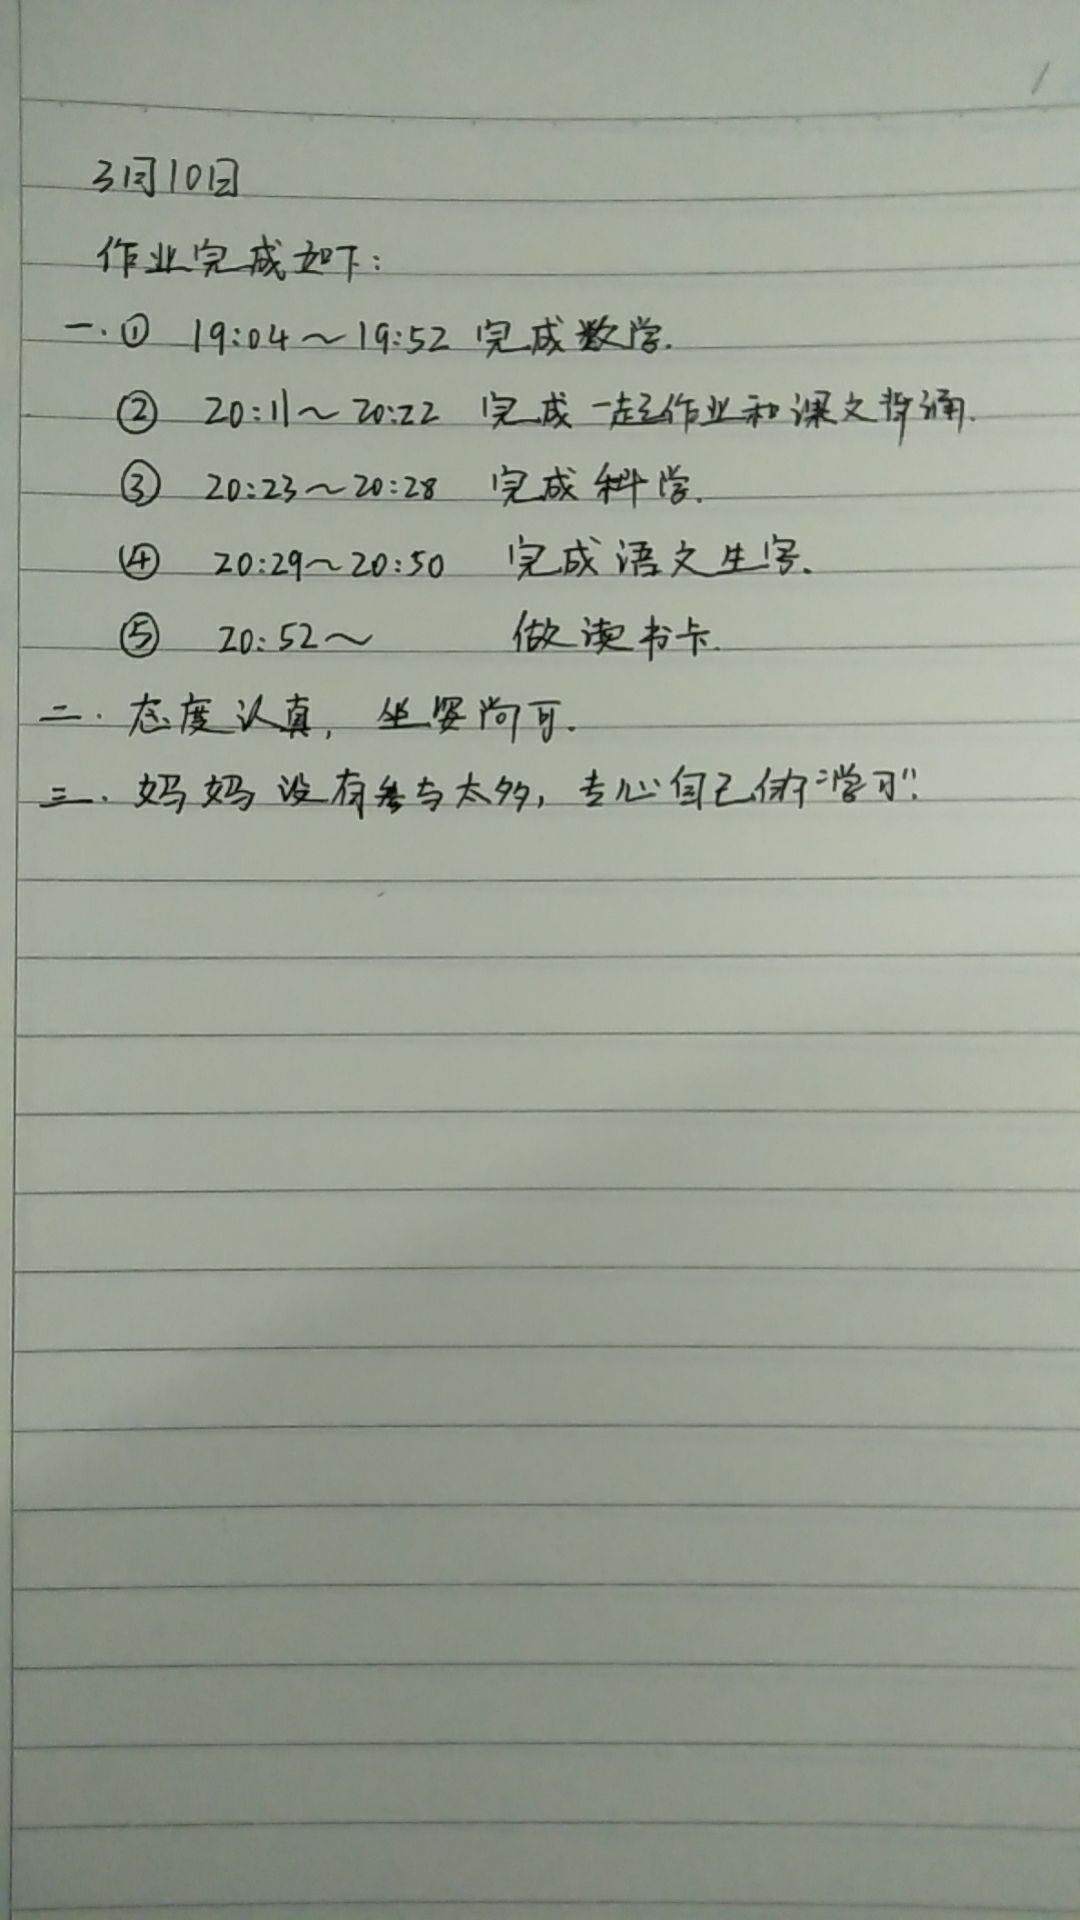 3月10日
作业完成如下:
一.① 19:04~19:52 完成数学.
② 20:11~20:22 完成一起作业和课文背诵.
③ 20:23~20:28 完成科学.
④ 20:29~20:50 完成语文生字.
⑤ 20:52~ 做读书卡.
二. 态度认真, 坐姿尚可.
三. 妈妈没有参与太多, 专心自己的"学习".